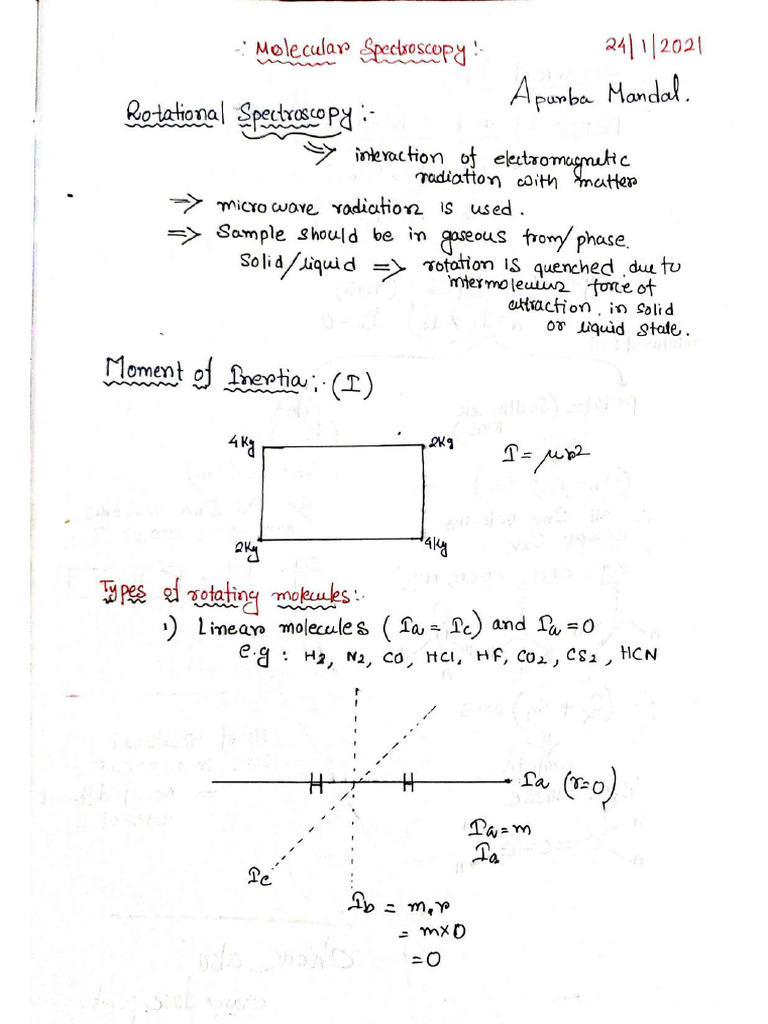 -: Molecular Spectroscopy :- 24/1/2021
Apurba Mandal.
Rotational Spectroscopy :-
=> interaction of electromagnetic
radiation with matter
=> microwave radiation is used.
=> Sample should be in gaseous from/phase.
Solid/liquid => rotation is quenched due to
intermolecular force of
attraction, in solid
or liquid state.
Moment of Inertia:- (I)
4Kg 2Kg
I = μr2
2Kg 4Kg
Types of rotating molecules:-
1) Linear molecules ( Ia = Ic) and Ia = 0
e.g : H2, N2, CO, HCl, HF, CO2, CS2, HCN
H H Ia (r=0)
Ia = m
Ia
Ic
Ib = m.r
= m×0
= 0